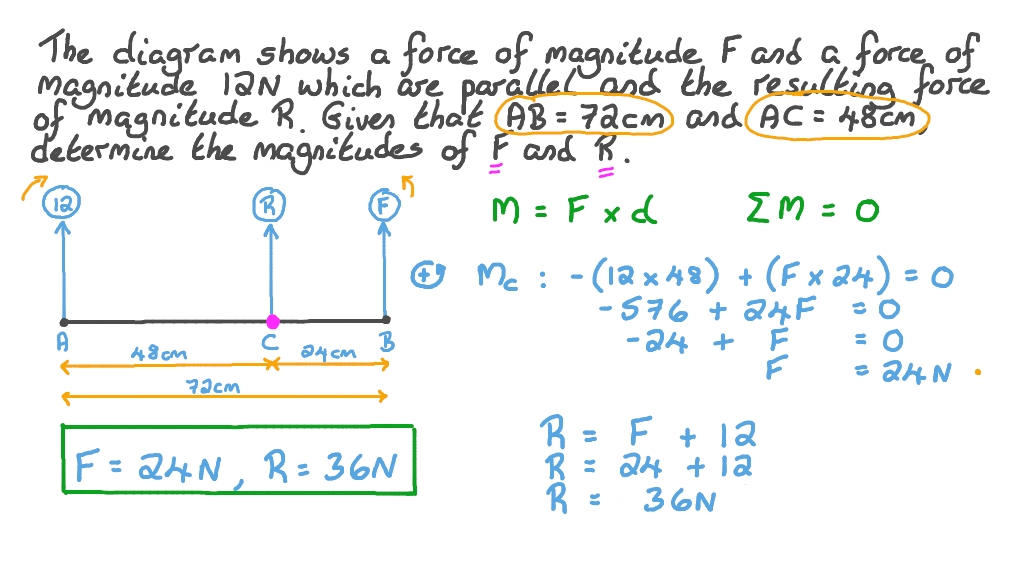 The diagram shows a force of magnitude F and a force of
magnitude 12N which are parallel and the resulting force
of magnitude R. Given that AB = 72cm and AC = 48cm,
determine the magnitudes of F and R.
12 R F
M = F x d ΣM = 0
+ Mc : -(12 x 48) + (F x 24) = 0
-576 + 24F = 0
-24 + F = 0
F = 24N
A C B
48cm 24cm
72cm
F = 24N, R = 36N
R = F + 12
R = 24 + 12
R = 36N